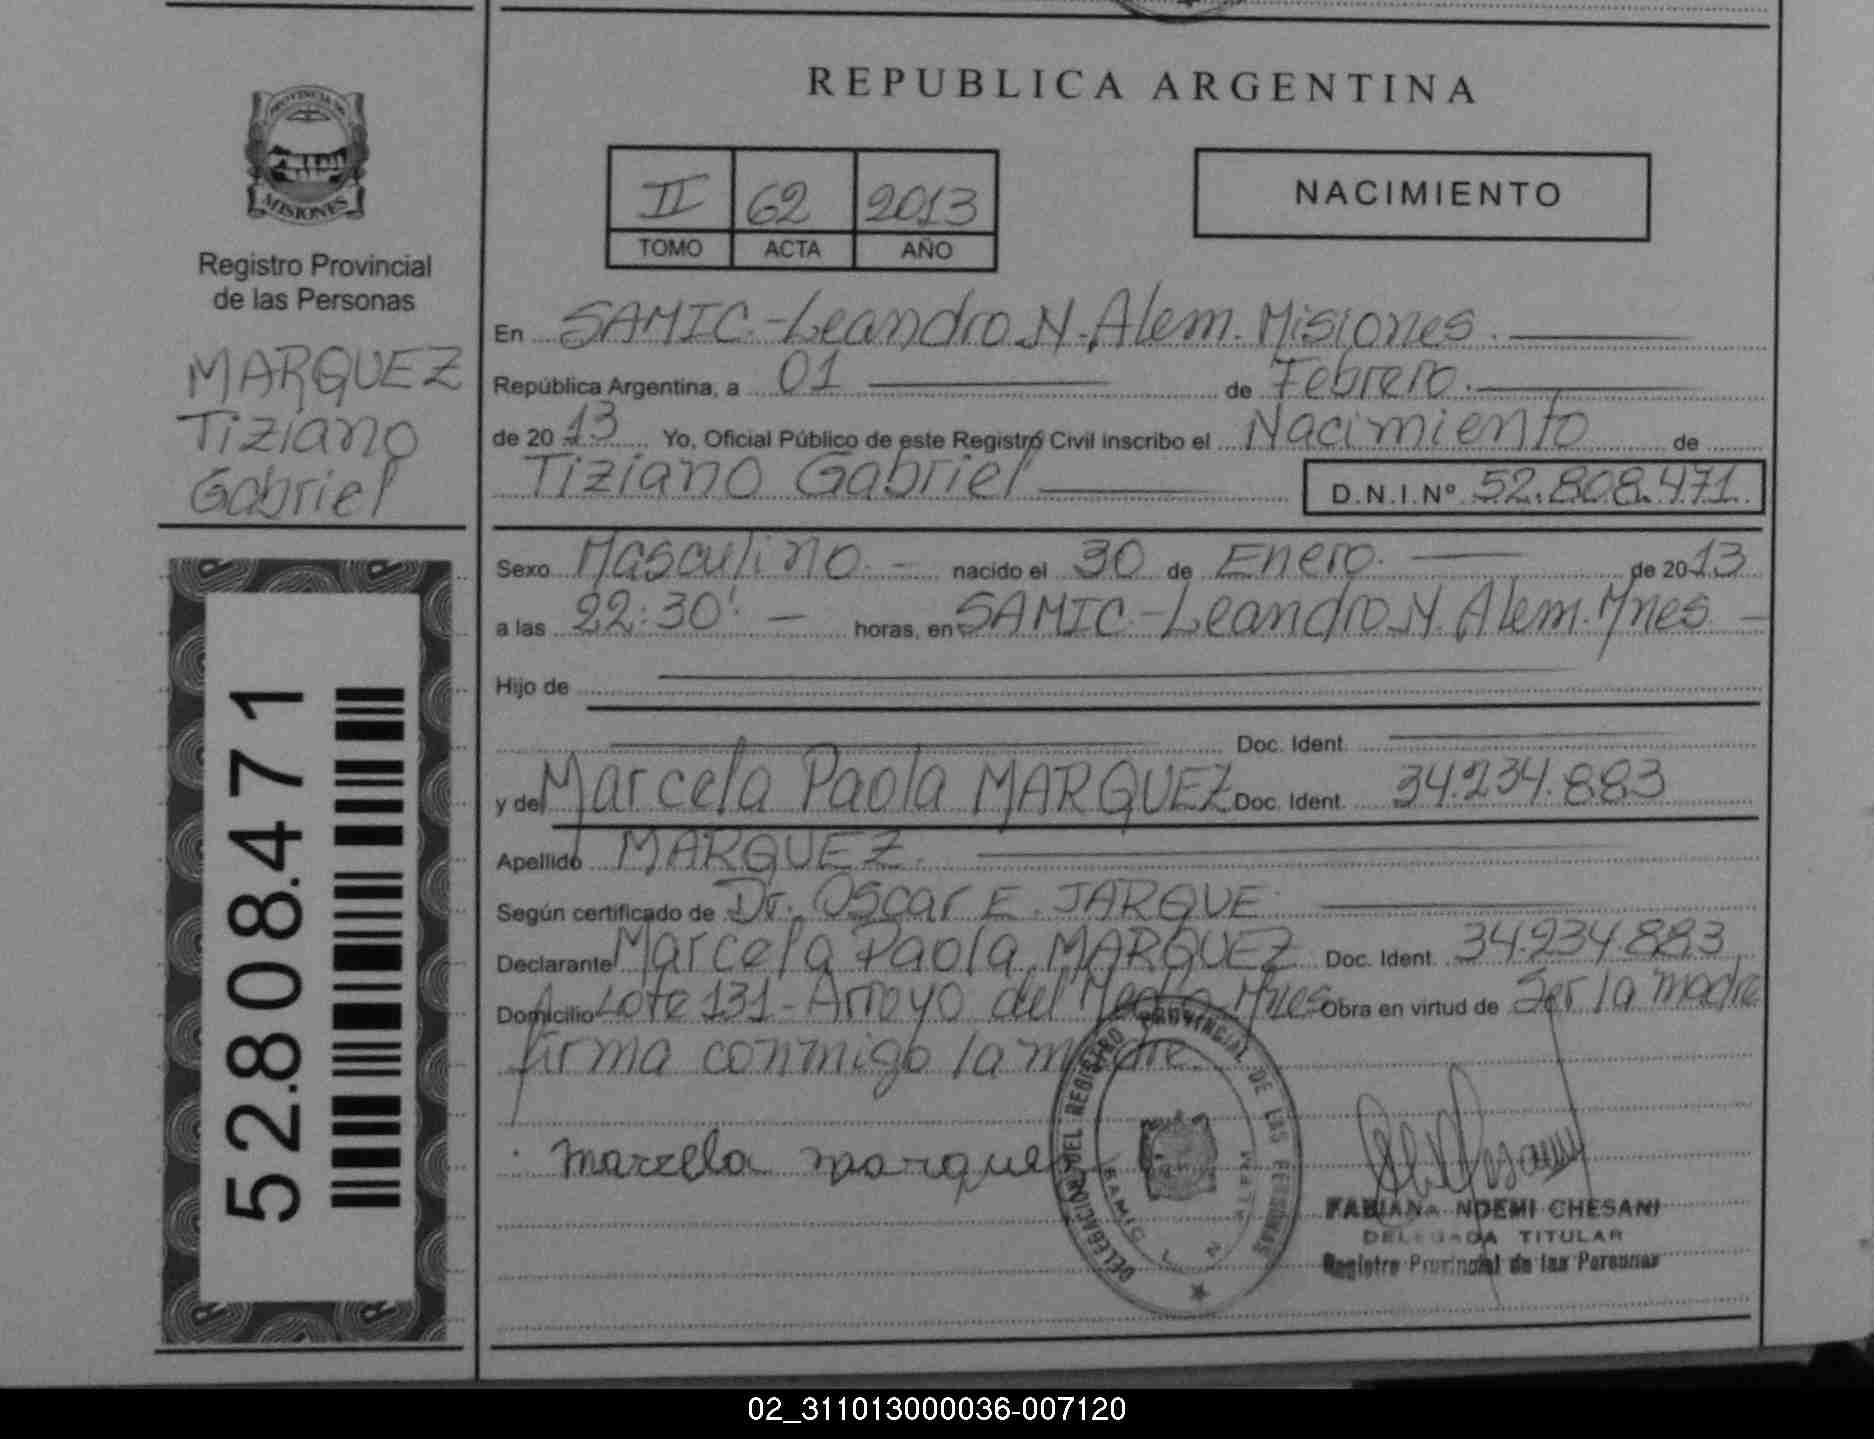 PROVINCIA DE
MISIONES
Registro Provincial
de las Personas
MARQUEZ
Tiziano
Gabriel
52.808.471
REPUBLICA ARGENTINA
II 62 2013
TOMO ACTA AÑO
NACIMIENTO
En SAMIC.-Leandro N. Alem. Misiones.
República Argentina, a 01 de Febrero.
de 2013 Yo, Oficial Público de este Registro Civil inscribo el Nacimiento de
Tiziano Gabriel D.N.I.Nº 52.808.471.
Sexo Masculino.- nacido el 30 de Enero. de 2013
a las 22:30'.- horas, en SAMIC.-Leandro N. Alem. Mnes.-
Hijo de
Doc. Ident.
y de Marcela Paola MARQUEZ Doc. Ident. 34.234.883
Apellido MARQUEZ.
Según certificado de Dr. Oscar E. JARQUE
Declarante Marcela Paola MARQUEZ Doc. Ident. 34.234.883
Domicilio Lote 131-Arroyo del Medio Mnes Obra en virtud de Ser la madre
firma conmigo la madre.
marzela marquez
DELEGACION DEL REGISTRO PROVINCIAL DE LAS PERSONAS
SAMIC L N ALEM
FABIANA NOEMI CHESANI
DELEGADA TITULAR
Registro Provincial de las Personas
02_311013000036-007120